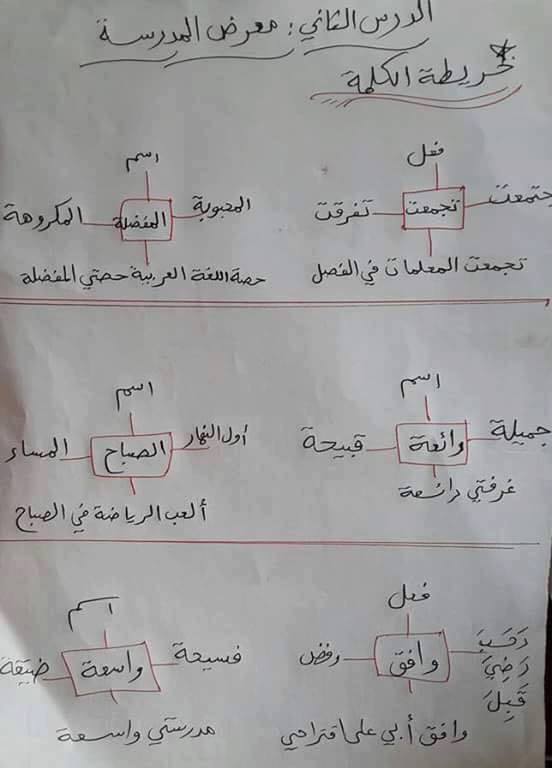 الدرس الثاني: معرض المدرسة
خريطة الكلمة
فعل
جتمعت
تجمعت
تفرقت
تجمعت المعلمات في الفصل
اسم
المحبوبة
المفضلة
المكروهة
حصة اللغة العربية حصتي المفضلة
اسم
جميلة
رائعة
قبيحة
غرفتي رائعة
اسم
أول النهار
الصباح
المساء
ألعب الرياضة في الصباح
فعل
رَضِيَ
قَبِلَ
وافق
رفض
وافق أبي على اقتراحي
اسم
فسيحة
واسعة
ضيقة
مدرستي واسعة